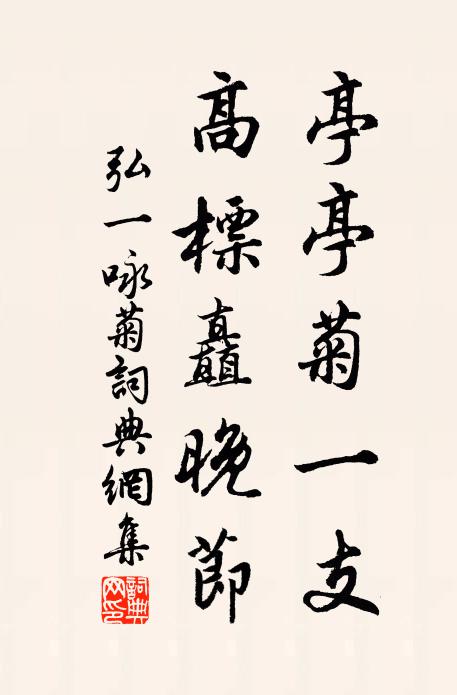 亭亭菊一支
高標矗晚節
弘一咏菊詞典網集
詞典
网印